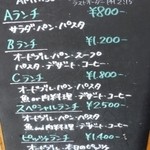 Aランチ ¥800-
サラダ・パン・パスタ
Bランチ ¥1,200-
オードブル・パン・スープ
パスタ・デザート・コーヒー
Cランチ ¥1,800-
オードブル・パン・パスタ
魚or肉料理・デザート・コーヒー
スペシャルランチ ¥2500-
オードブル・パン・パスタ
魚and肉料理・デザート・コーヒー
ピッツァランチ ¥1,400-